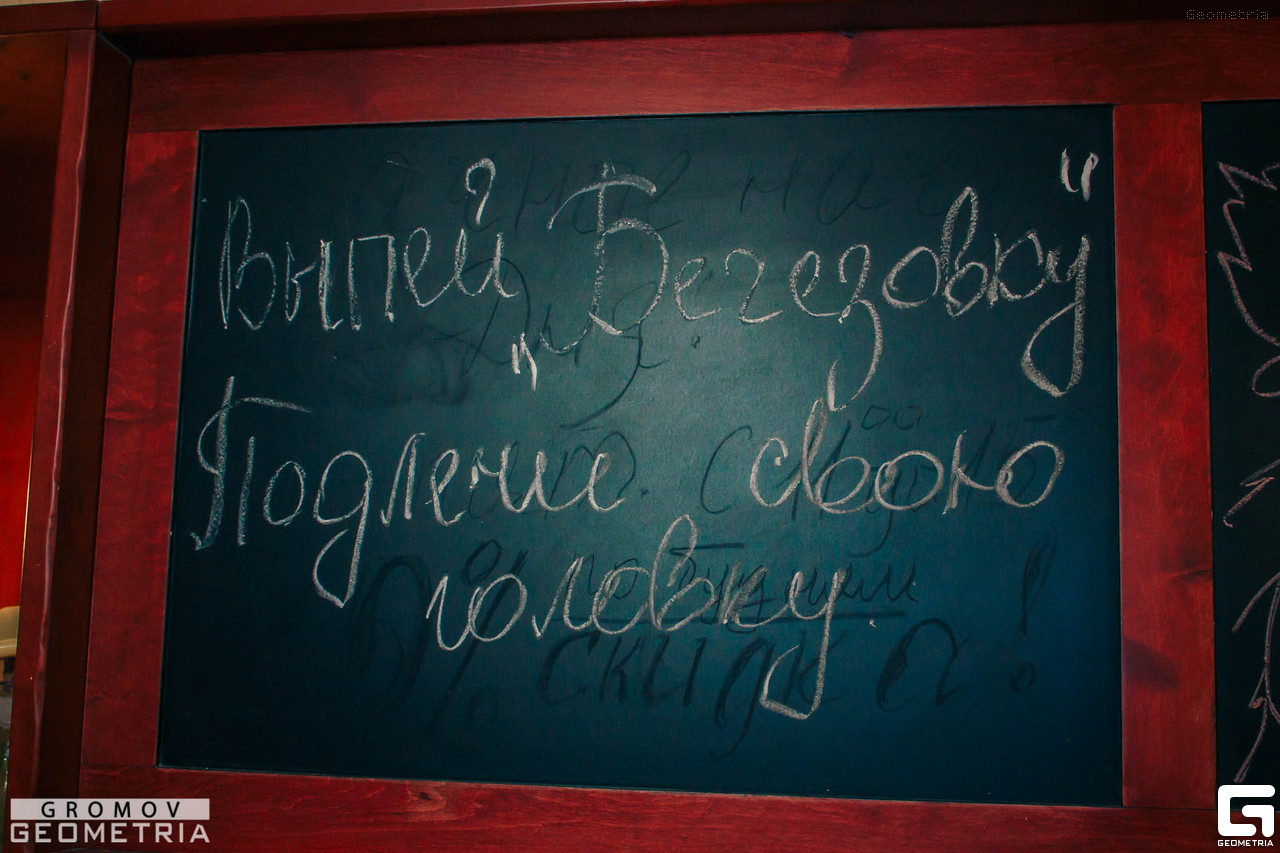 Geometria
Выпей
„Бегезовку“
Подлечи свою
головку.
% по будним
скидка!
GROMOV
GEOMETRIA
GEOMETRIA